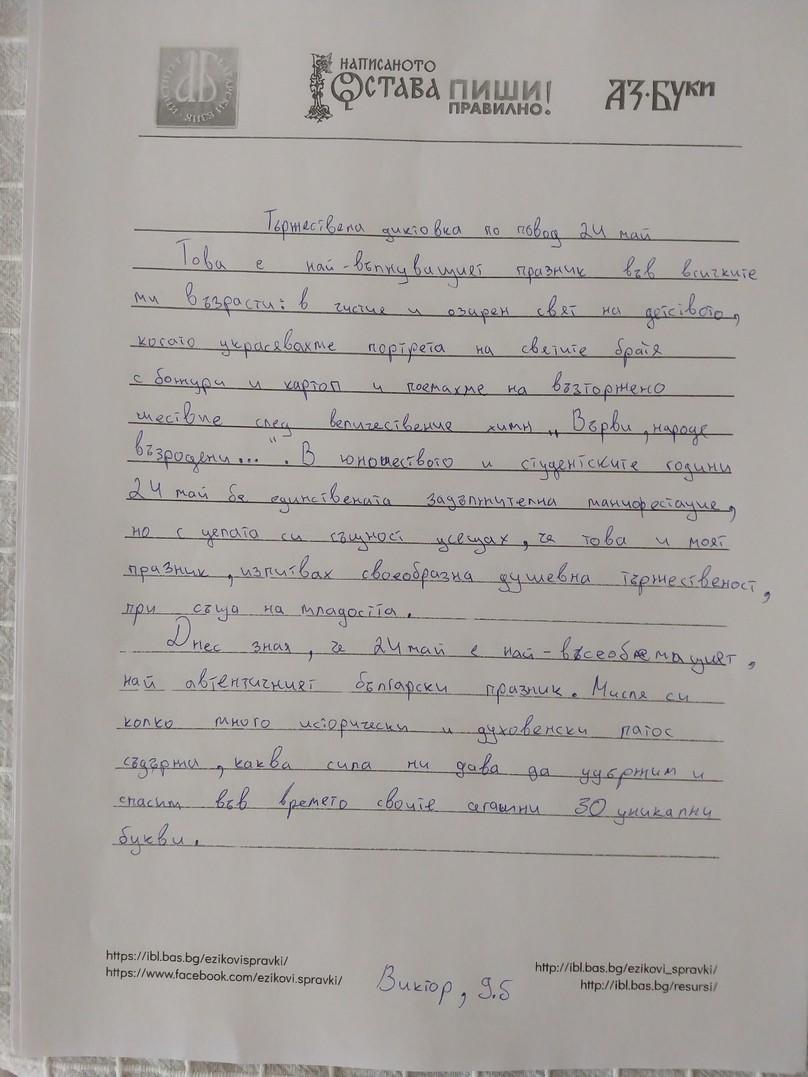 ИНСТИТУТ ЗА БЪЛГАРСКИ ЕЗИК
НАПИСАНОТО
ОСТАВА ПИШИ
ПРАВИЛНО!
АЗ·БУКИ
Тържествена диктовка по повод 24 май
Това е най-вълнуващият празник във всичките
ми възрасти: в чистие и озарен свят на детсвото,
когато украсявахме портрета на светите братя
с божури и картоп и поемахме на възторжено
шествие след величествение химн „Върви, народе
възродени..." . В юношеството и студентските години
24 май бе единствената задължителна манифестация,
но с цялата си същност усещах, че това и моят
празник, изпитвах своеобразна душевна тържественост,
при съща на младостта.
Днес зная, че 24 май е най-всеобемащият,
най автентичният български празник. Мисля си
колко много исторически и духовенски патос
съдържи, каква сила ни дава да удържим и
спасим във времето своите сегашни 30 уникални
букви.
https://ibl.bas.bg/ezikovispravki/
https://www.facebook.com/ezikovi.spravki/
Виктор, 9.б
http://ibl.bas.bg/ezikovi_spravki/
http://ibl.bas.bg/resursi/